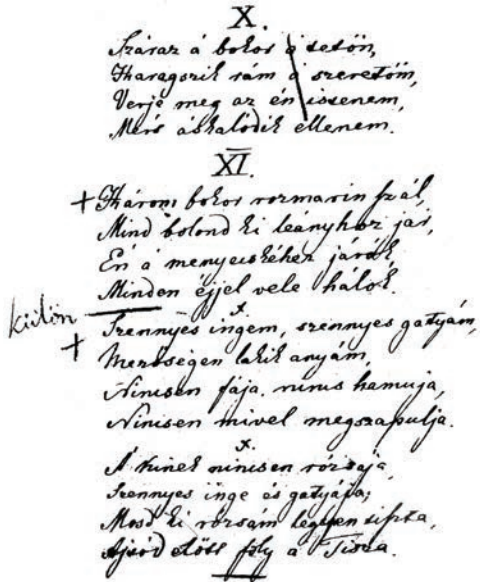 X.
Száraz á bokor á tetőn,
Haragszik rám á szeretőm,
Verje meg az én istenem,
Mért áskálódik ellenem.
XI.
+ Három bokor rozmarin szál,
Mind bolond ki leányhoz jár,
Én á menyecskéhez járok,
Minden éjjel vele hálok.
külön
x.
+ Szennyes ingem, szennyes gatyám,
Messzségen lakik anyám,
Nincsen fája, nincs hamuja,
Nincsen mivel megszapulja.
x.
A kinek nincsen rózsája,
Szennyes inge és gatyája;
Mosd ki rózsám legyen tiszta,
Ajtód előtt foly a Tisza.